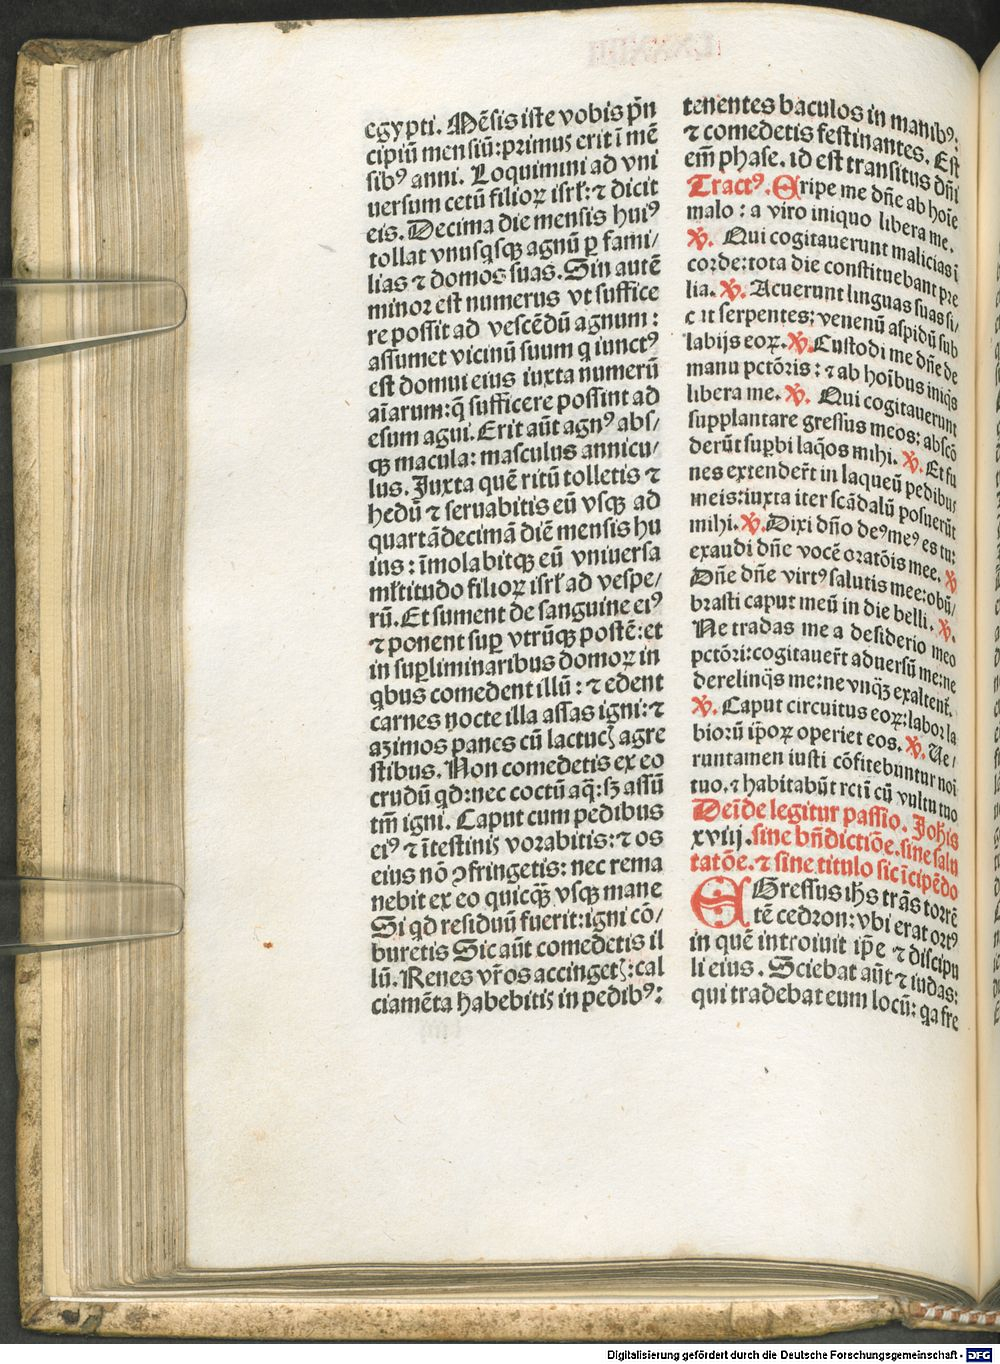 egypti. Mēsis iste vobis p̄n
cipiū mensiū: primus erit ī mē
sibꝰ anni. Loquimini ad vni
uersum cetū filioꝝ isrl̄: ⁊ dicit
eis. Decima die mensis huiꝰ
tollat vnusq̇sqꝫ agnū ꝑ fami/
lias ⁊ domos suas. Sin autē
minor est numerus vt suffice
re possit ad vescēdū agnum:
assumet vicinū suum q iunctꝰ
est domui eius iuxta numerū
aīarum: q̄ sufficere possint ad
esum agui. Erit aūt agnꝰ abs/
qꝫ macula: masculus annicu/
lus. Juxta quē ritū tolletis ⁊
hedū ⁊ seruabitis eū vsqꝫ ad
quartādecimā diē mensis hu
ius: īmolabitqꝫ eū vniuersa
ml̄titudo filioꝝ isrl̄ ad vespe/
rū. Et sument de sanguine eiꝰ
⁊ ponent suꝑ vtrūqꝫ postē: et
in suꝑliminaribus domoꝝ in
qbus comedent illū: ⁊ edent
carnes nocte illa assas igni: ⁊
azimos panes cū lactucꝭ agre
stibus. Non comedetis ex eo
crudū qd: nec coctū aq̄: sꝫ assū
tm̄ igni. Caput cum pedibus
eiꝰ ⁊ ītestinis vorabitis: ⁊ os
eius nō ꝯfringetis: nec rema
nebit ex eo quicqꝫ̄ vsqꝫ mane
Si qd residuū fuerit: igni cō/
buretis Sic aūt comedetis il
lū. Renes vr̄os accingetꝭ: cal
ciamēta habebitis in pedibꝰ:
tenentes baculos in manibꝰ:
⁊ comedetis festinantes. Est
em̄ phase. id est transitus dn̄i
Tractꝰ. Eripe me dn̄e ab hoīe
malo: a viro iniquo libera me.
℣. Qui cogitauerunt malicias ī
corde: tota die constituebant pre
lia. ℣. Acuerunt linguas suas si/
c ut serpentes: venenū aspidū sub
labijs eoꝝ. ℣. Custodi me dn̄e de
manu pctōris: ⁊ ab hoībus iniqs
libera me. ℣. Qui cogitauerunt
supplantare gressus meos: abscō
derūt suꝑbi laq̄os mihi. ℣. Et fu
nes extender̄t in laqueū pedibus
meis: iuxta iter scādalū posuerūt
mihi. ℣. Dixi dn̄o deꝰ meꝰ es tu:
exaudi dn̄e vocē oratōis mee. ℣
Dn̄e dn̄e virtꝰ salutis mee: obū/
brasti caput meū in die belli. ℣.
Ne tradas me a desiderio meo
pctōri: cogitauer̄t aduersū me: ne
derelinq̄s me: ne vnqꝫ̄ exaltent̄.
℣. Caput circuitus eoꝝ: labor la
biorū ip̄oꝝ operiet eos. ℣. Ue/
runtamen iusti cōfitebuntur noī
tuo. ⁊ habitabūt rcti cū vultu tuo
Deīde legitur passio. Joh̄is
xviij. sine bn̄dictiōe. sine salu
tatōe. ⁊ sine titulo sic īcipēdo
EGressus ih̄s trās torrē
tē cedron: vbi erat ortꝰ
in quē introiuit ip̄e ⁊ discipu
li eius. Sciebat aūt ⁊ iudas:
qui tradebat eum locū: qa fre
Digitalisierung gefördert durch die Deutsche Forschungsgemeinschaft - DFG